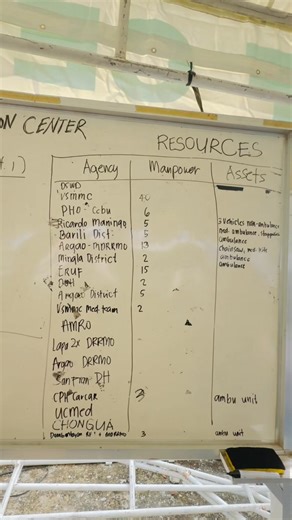 ON CENTER
RESOURCES
# 1)
Agency Manpower Assets
DSWD
VSMMC 40
PHO - Cebu 6
Ricardo Maningo 5 3 vehicles non-ambulance
Barili Dist. 5 med. ambulance,
Argao - MDRRMO 13 ambulance
Mingla District 2 chainsaw,
ERUF 15 ambulance
2 ambulance
Argao District 5
VSMMC med team 2
AMRO
Lapu2x DRRMO
Argao DRRMO
San Fran DH
CPH Carcar 3 ambu unit
UCmed
CHONGUA
3 ambu unit